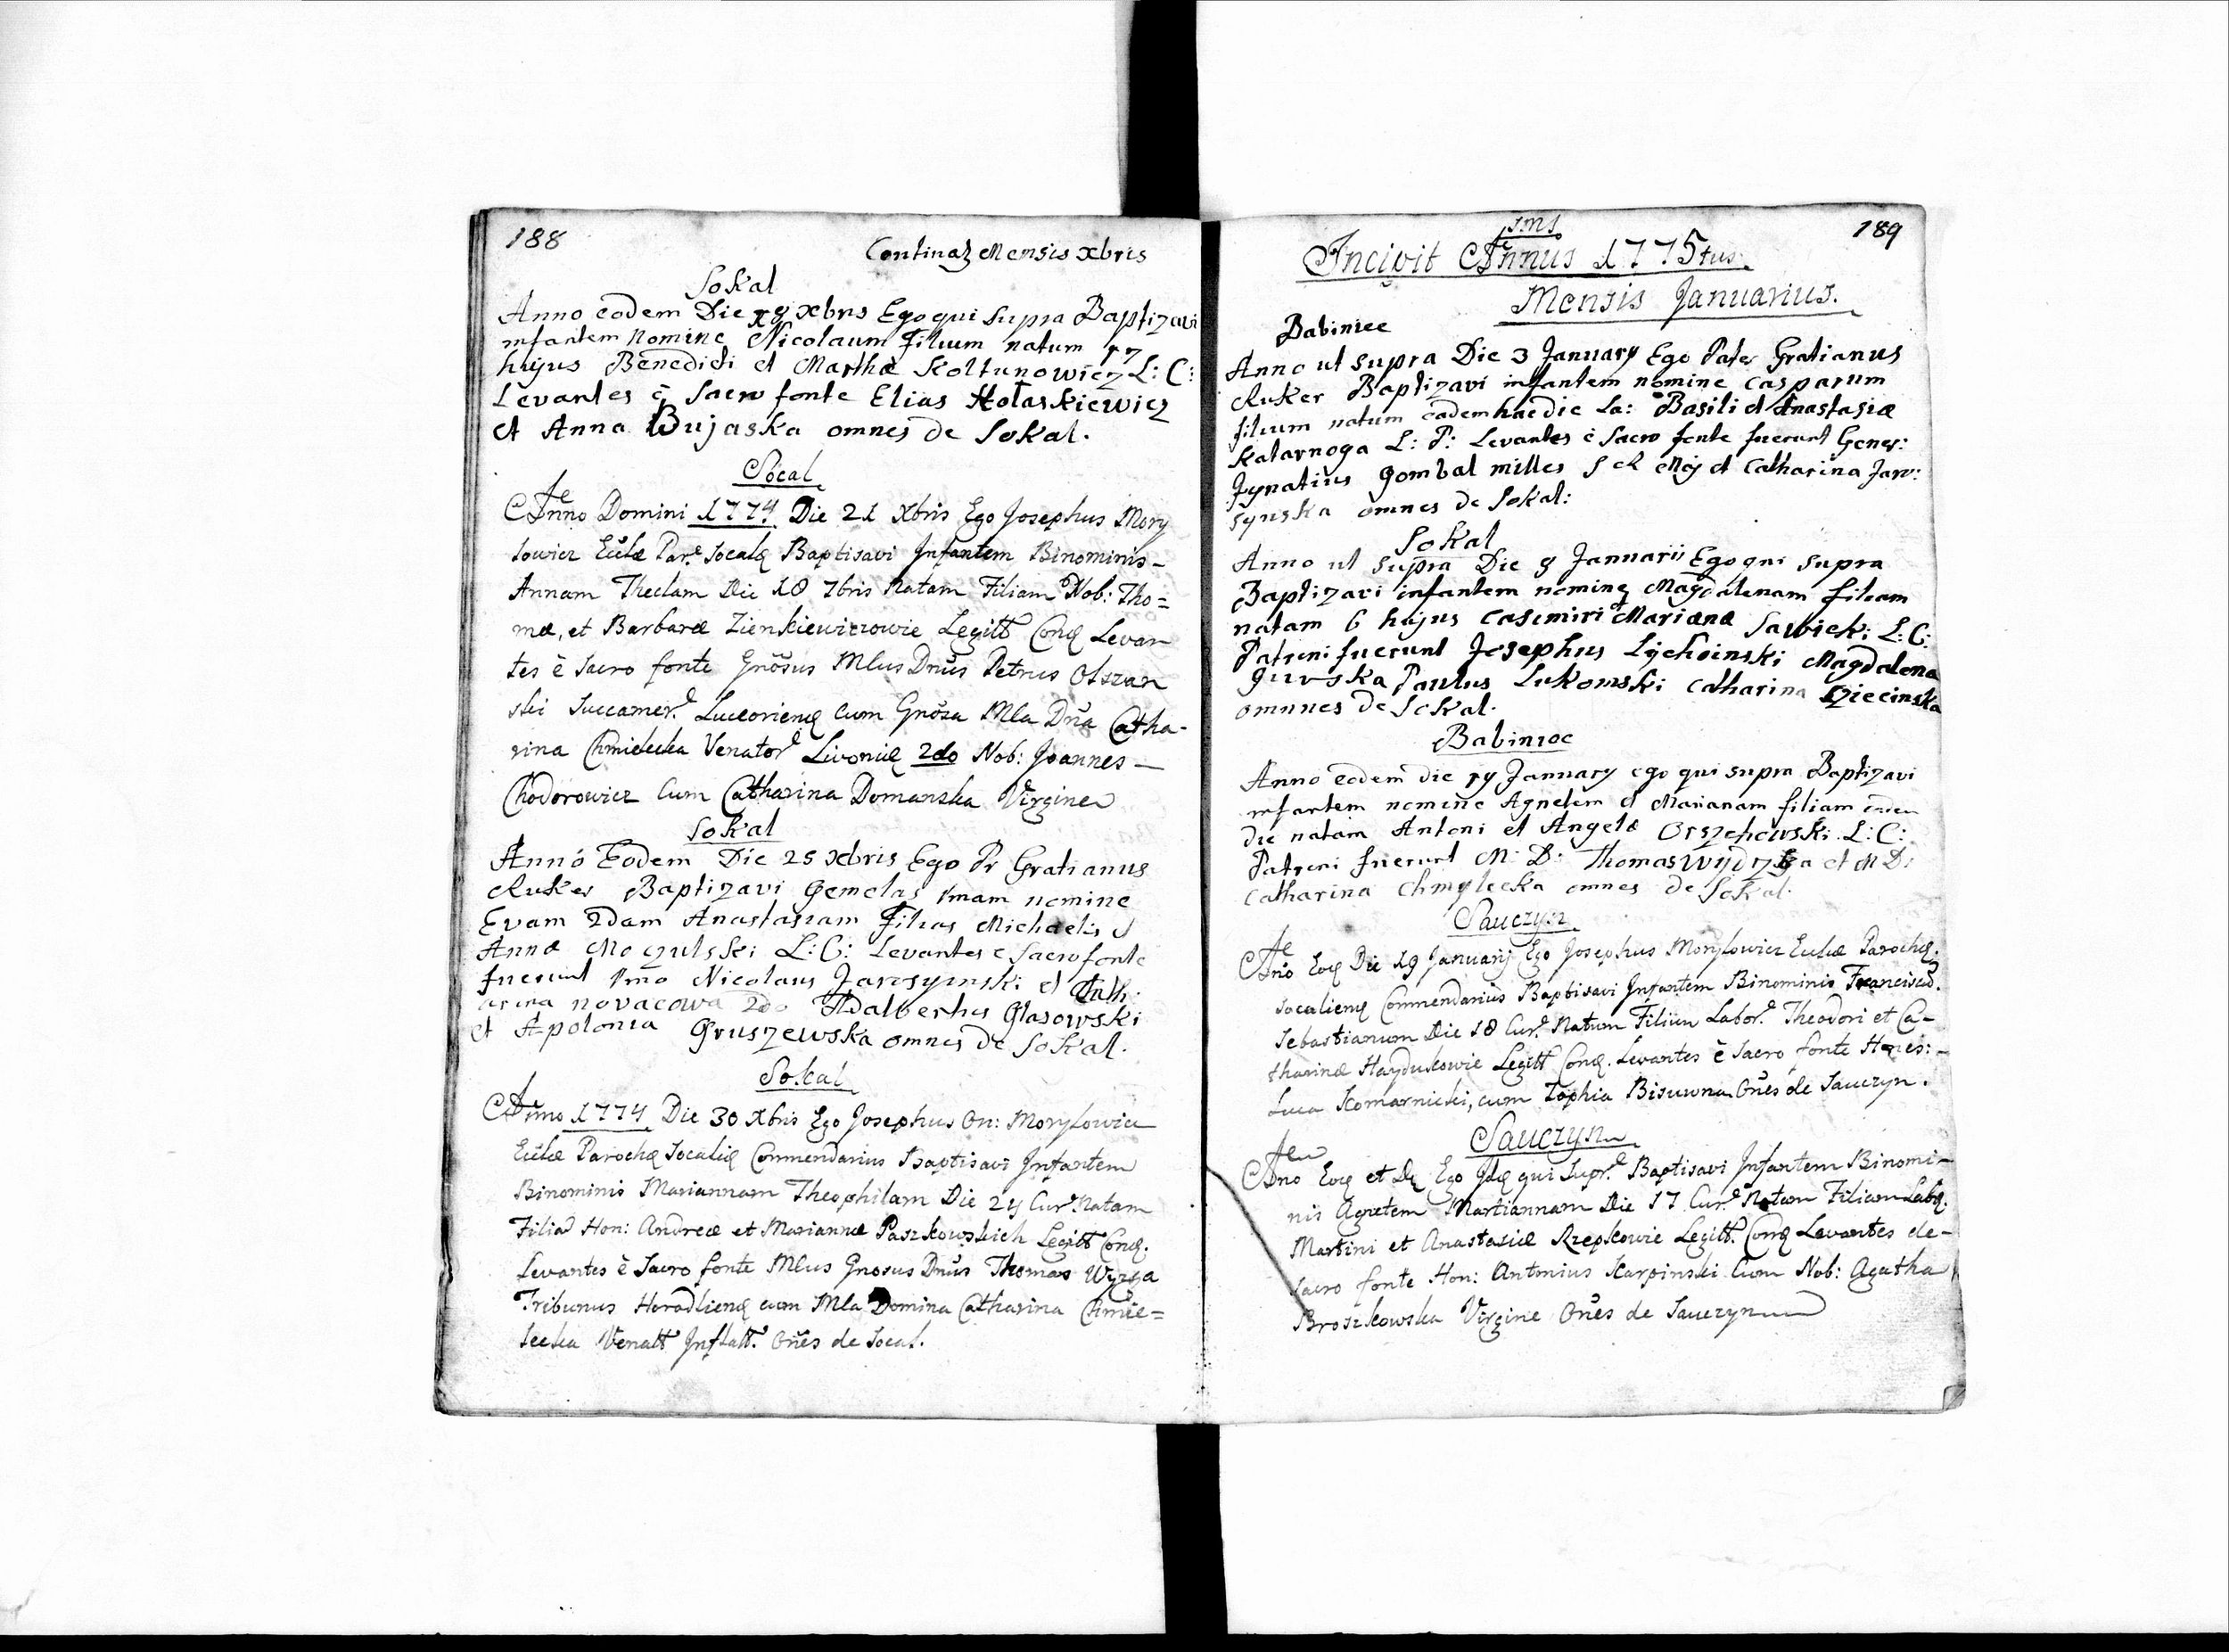 188
Continaz Mensis Xbris
Sokal
Anno eodem Die 18 xbris Ego qui supra Baptizavi
infantem Nomine Nicolaum Filium natum 17
hujus Benedicti et Marthæ Koltunowicz L: C:
Levantes è Sacro fonte Elias Hołaskiewicz
et Anna Bujaska omnes de Sokal.
Socal
Anno Domini 1774 Die 21 Xbris Ego Josephus Mory
lowicz Eccłæ Par: Socalę Baptisavi Infantem Binominis
Annam Theclam Die 18 7bris Natam Filiam Nob: Tho=
mæ, et Barbaræ Zienkiewiczowie Legitt Conę Levan
tes è Sacro fonte Gnosus Mlus Dnus Petrus Olszan
ski Succamer. Luceorienę cum Gnosa Mla Dna Catha-
rina Chmielecka Venator Livonię 2do Nob: Joannes
Chodorowicz Cum Catharina Domanska Virgine
Sokal
Anno Eodem Die 25 xbris Ego Pr Gratianus
Ruker Baptizavi Gemelas 1mam nomine
Evam 2dam Anastasiam Filias Michaelis et
Annæ Mogulski L: C: Levantes e Sacro fonte
fuerunt 1mo Nicolaus Jarosynski et Cath
arina novacowa 2do Adalbertus Glasowski
et Apolonia Gruszewska omnes de Sokal.
Sokal
Anno 1774 Die 30 Xbris Ego Josephus On: Morylowicz
Eccłæ Parochę Socalię Commendarius Baptisavi Infantem
Binominis Mariannam Theophilam Die 24 Cur. Natam
Filiã Hon: Andreæ et Mariannæ Paszkowskich Legitt Conę.
Levantes è Sacro fonte Mlus Gnosus Dnus Thomas Wyzga
Tribunus Horodlienę cum Mla Domina Catharina Chmie=
lecka Venatt Inflatt. Ones de Socal.
189
Incipit Annus 1775tus.
Mensis Januarius.
Babiniec
Anno ut supra Die 3 January Ego Pater Gratianus
Ruker Baptizavi infantem nomine Casparum
filium natum eadem hac die La: Basili et Anastasiæ
Katarnoga L: P: Levantes è Sacro fonte fuerunt Gener:
Ignatius Gombal milles S R Mỹ et Catharina Jaro:
synska omnes de Sokal:
Sokal
Anno ut supra Die 8 Januarii Ego qui supra
Baptizavi infantem nomine Magdalenam filiam
natam 6 hujus Casimiri et Marianæ Sawicki L: C:
Patreni fuerunt Josephus Lychoinski Magdalena
Gurska Paulus Lukomski Catharina Dziecinska
omnnes de Sokal.
Babinzoc
Anno eodem die 14 January ego qui supra Baptizavi
infantem nomine Agnetem et Marianam filiam
die natam Antoni et Angelæ Orszehowski L: C:
Patreni fuerunt M: D: Thomas Wydzga et M D:
Catharina Chmylecka omnes de Sokal.
Sauczyn
Ano Eoę Die 19 Januarij Ego Josephus Morylowicz Eccłæ Parochę.
Socalienę Commendarius Baptisavi Infantem Binominis Franciscũ.
Sebastianum Die 18 Cur. Natum Filium Labor. Theodori et Ca-
tharinæ Haydukowie Legitt Conę. Levantes è Sacro fonte Hones:
Luca Komarnicki, cum Zophia Bisuwna Ones de Sauczyn.
Sauczyn
Ano Eoę et Dę Ego Idę qui Supr. Baptisavi Infantem Binomi-
nis Agnetem Martiannam Die 17 Cur. Natam Filiam Labę.
Martini et Anastasiæ Rzepkowie Legitt. Conę Levantes de-
sacro fonte Hon: Antonius Karpinski Cum Nob: Agatha
Broszkowska Virgine Ones de Sauczyn